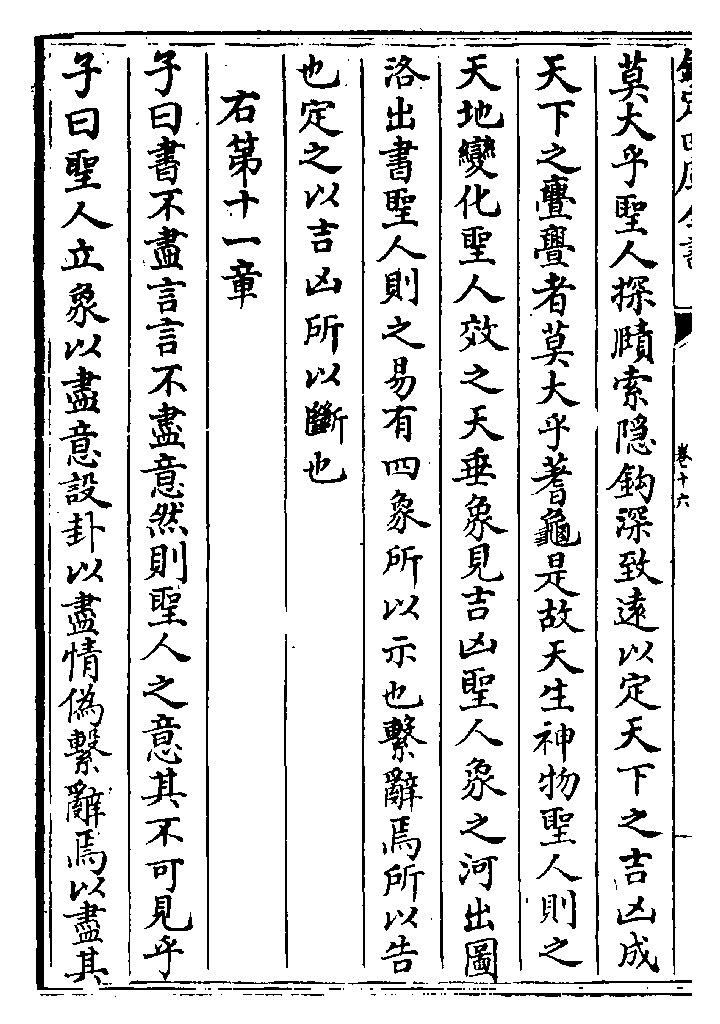 欽定四庫全書
卷十六
莫大乎聖人探賾索隠鈎深致逺以定天下之吉凶成
天下之亹亹者莫大乎蓍龜是故天生神物聖人則之
天地變化聖人效之天垂象見吉凶聖人象之河出圖
洛出書聖人則之易有四象所以示也繫辭焉所以告
也定之以吉凶所以斷也
右第十一章
子曰書不盡言言不盡意然則聖人之意其不可見乎
子曰聖人立象以盡意設卦以盡情偽繫辭焉以盡其